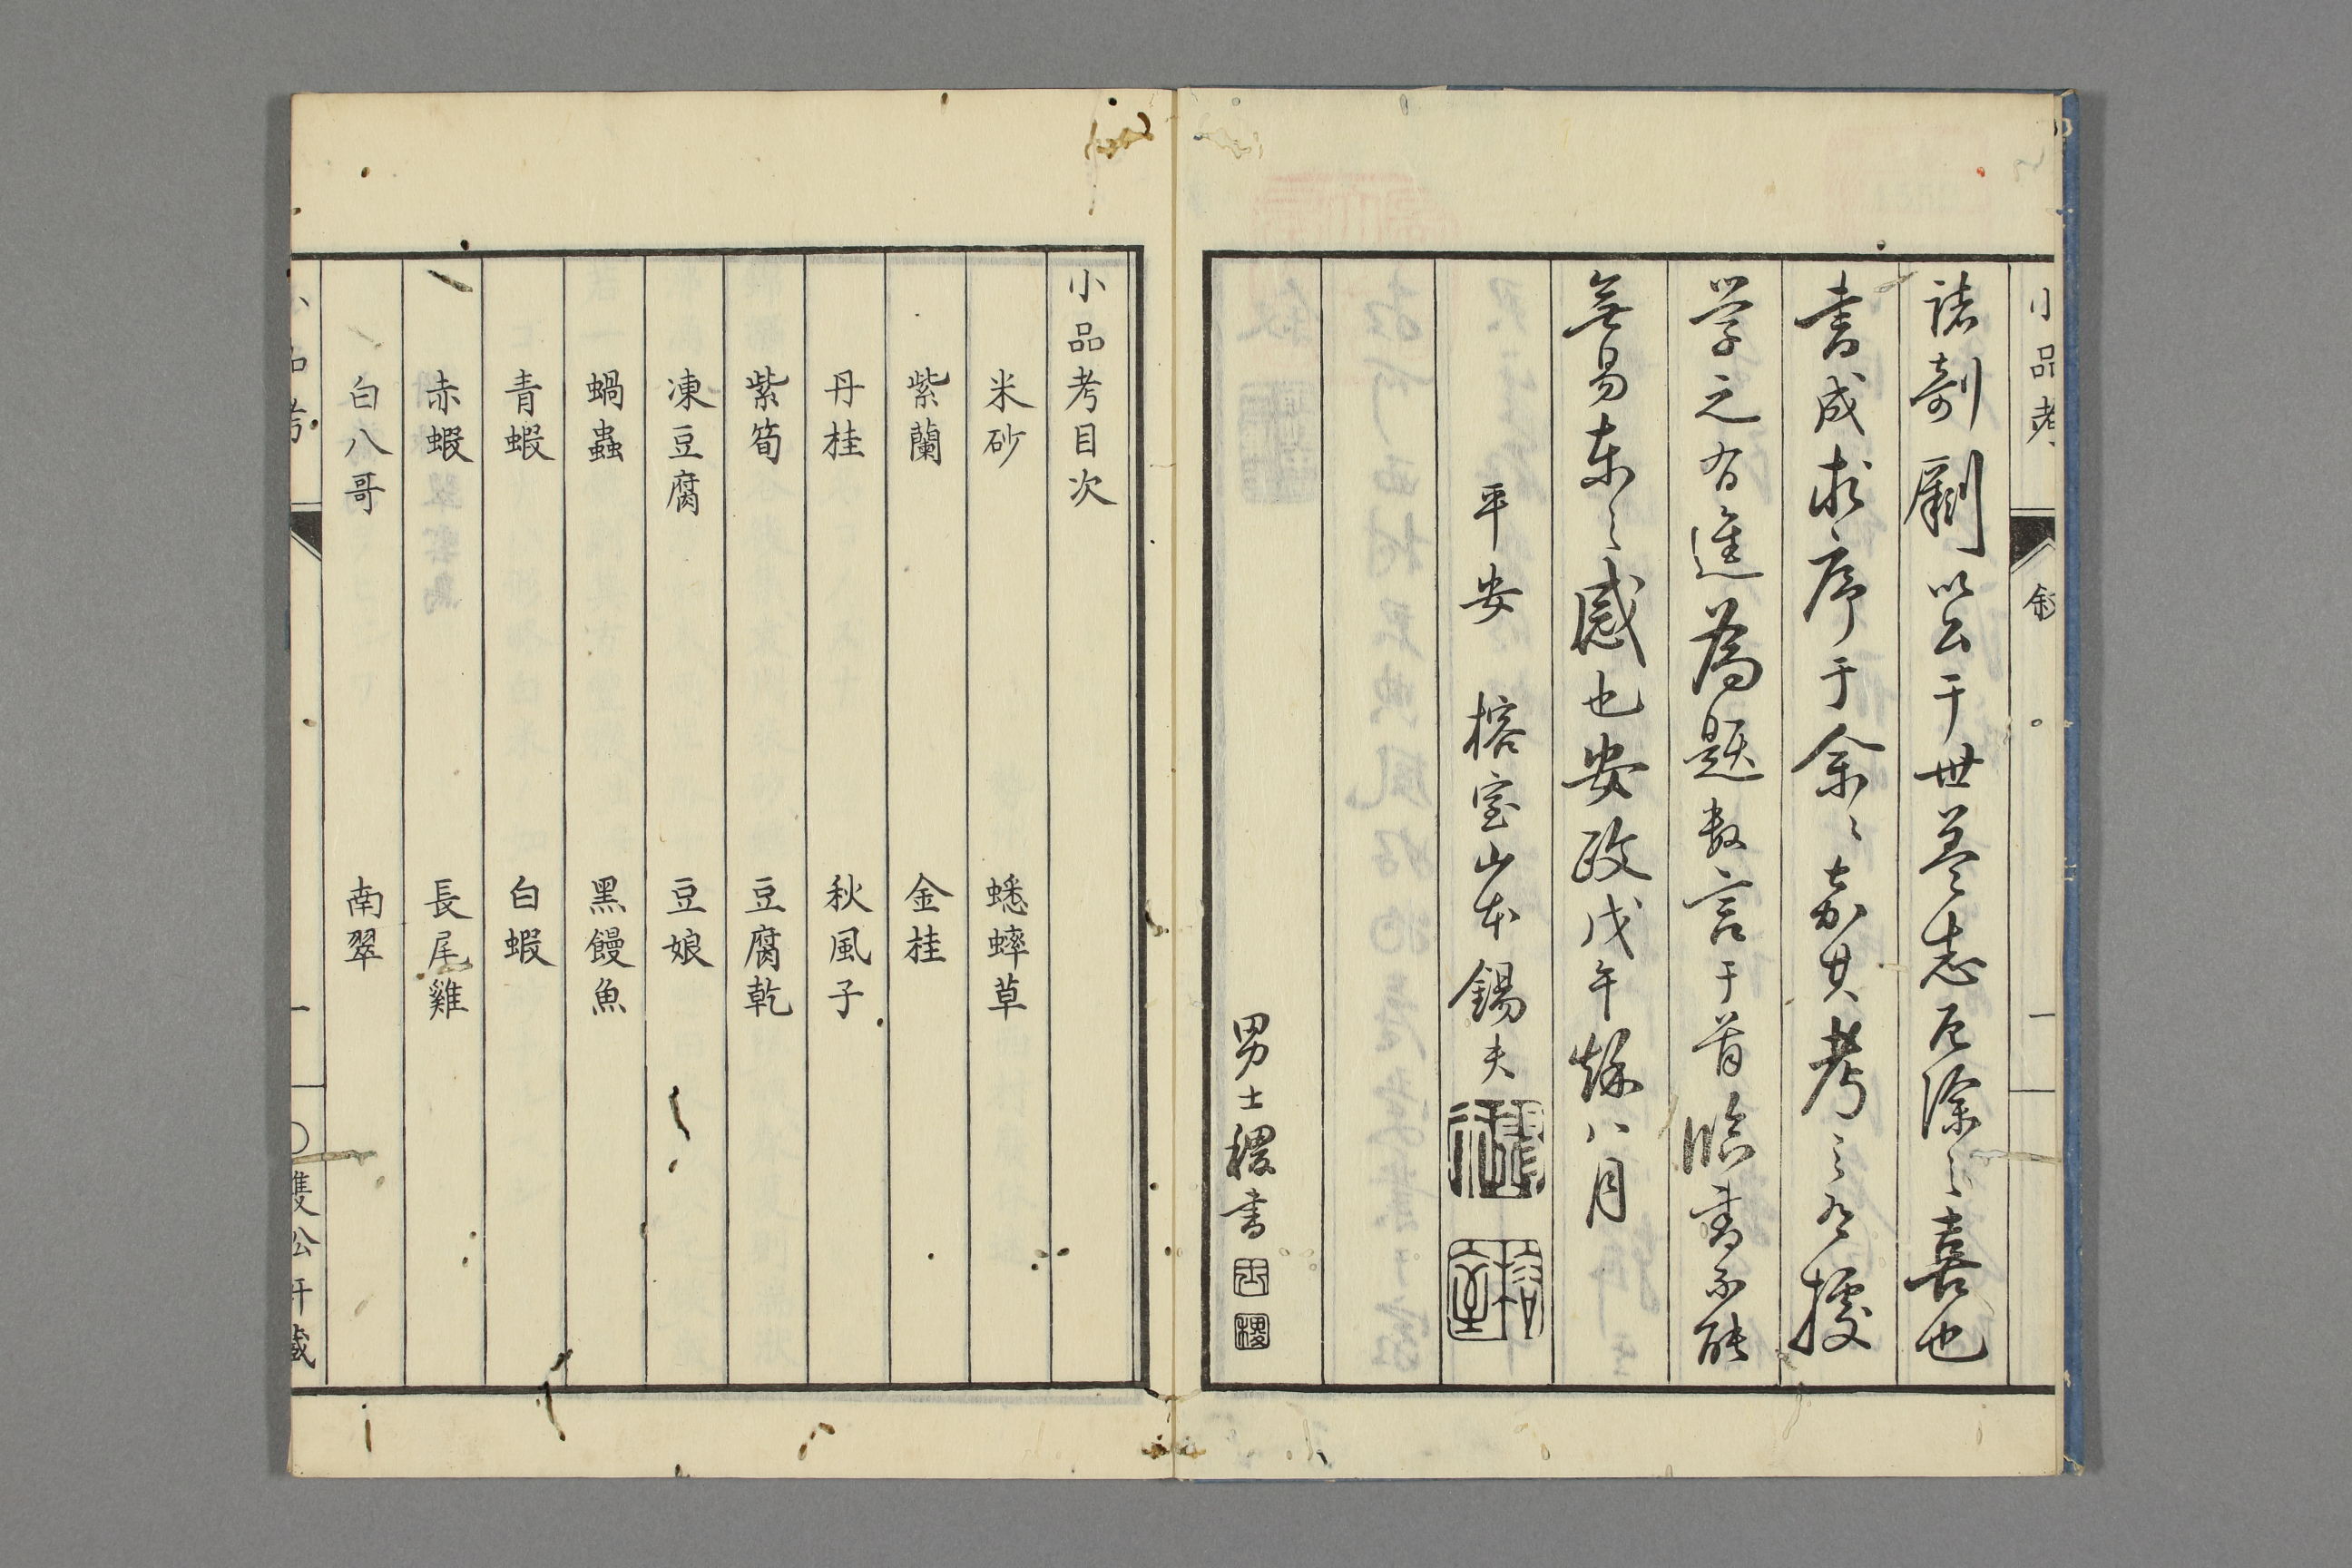 小品考
叙
一
諸剞劂以公于世蓋志石除之喜也
書成求序于余々嘉其考之有據
学之有進為題数言于首臨書不能
無昜東之感也安政戊午秌八月
平安 榕室山本錫夫
男士稷書
小品考目次
米砂 蟋蟀草
紫蘭 金桂
丹桂 秋風子
紫筍 豆腐乾
凍豆腐 豆娘
蝸蟲 黑饅魚
青蝦 白蝦
赤蝦 長尾雞
白八哥 南翠
小品考
一